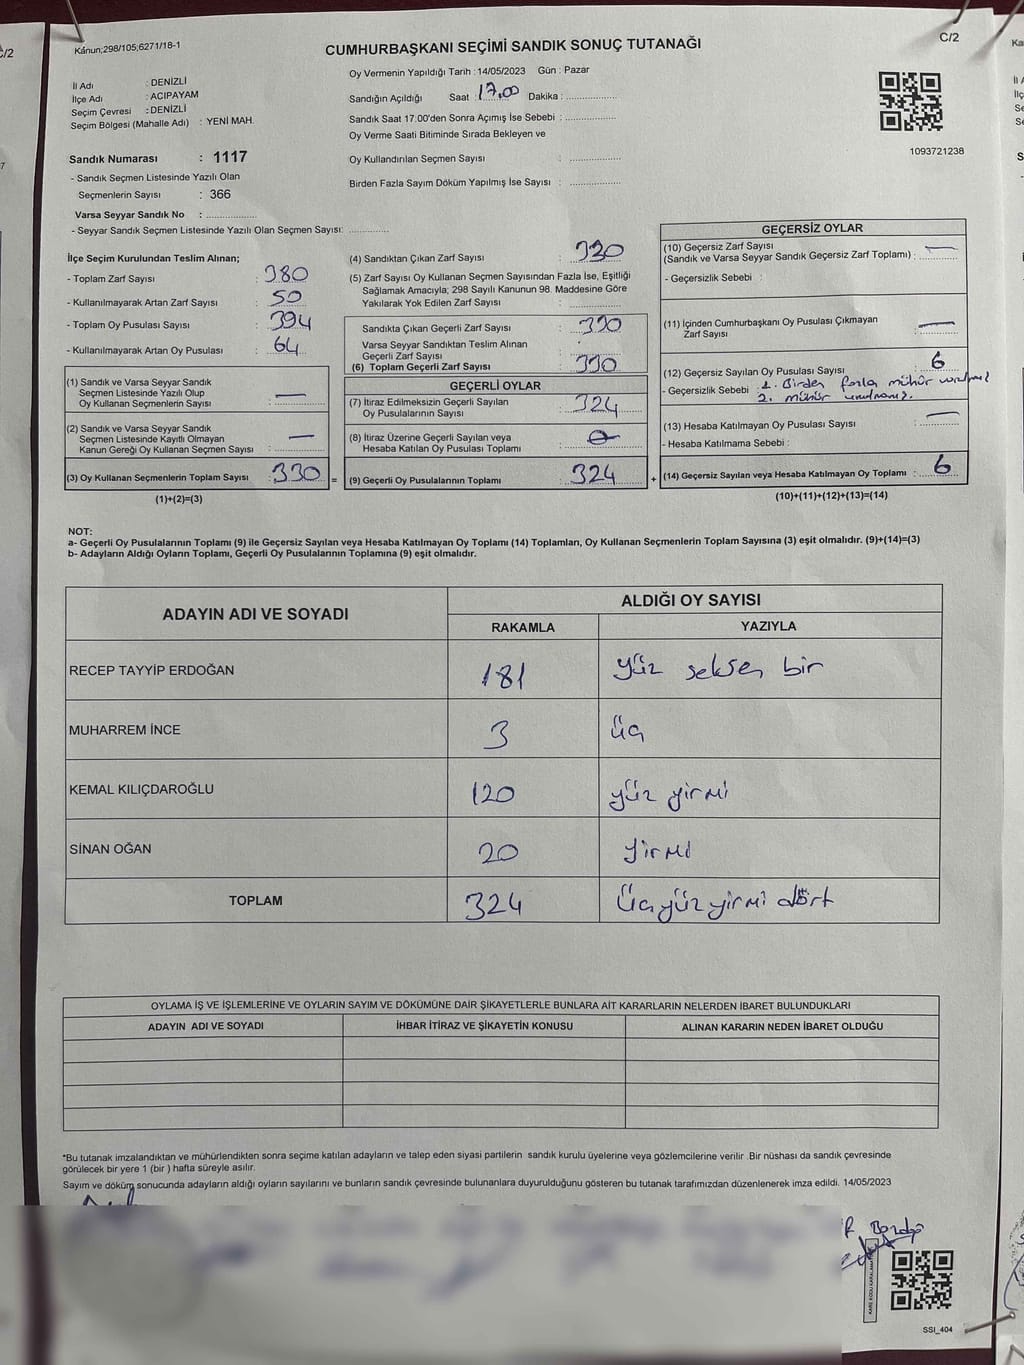 Kânun;298/105;6271/18-1
CUMHURBAŞKANI SEÇİMİ SANDIK SONUÇ TUTANAĞI
C/2
İl Adı : DENİZLİ
İlçe Adı : ACIPAYAM
Seçim Çevresi : DENİZLİ
Seçim Bölgesi (Mahalle Adı) : YENİ MAH.
Sandık Numarası : 1117
- Sandık Seçmen Listesinde Yazılı Olan
Seçmenlerin Sayısı : 366
Varsa Seyyar Sandık No : ................
- Seyyar Sandık Seçmen Listesinde Yazılı Olan Seçmen Sayısı: .............
Oy Vermenin Yapıldığı Tarih : 14/05/2023 Gün : Pazar
Sandığın Açıldığı Saat : 17,00 Dakika : ................
Sandık Saat 17:00'den Sonra Açımış İse Sebebi : ................
Oy Verme Saati Bitiminde Sırada Bekleyen ve
Oy Kullandırılan Seçmen Sayısı : ................
Birden Fazla Sayım Döküm Yapılmış İse Sayısı : ................
1093721238
İlçe Seçim Kurulundan Teslim Alınan;
- Toplam Zarf Sayısı : 380
- Kullanılmayarak Artan Zarf Sayısı : 50
- Toplam Oy Pusulası Sayısı : 394
- Kullanılmayarak Artan Oy Pusulası : 64
(1) Sandık ve Varsa Seyyar Sandık
Seçmen Listesinde Yazılı Olup
Oy Kullanan Seçmenlerin Sayısı : —
(2) Sandık ve Varsa Seyyar Sandık
Seçmen Listesinde Kayıtlı Olmayan
Kanun Gereği Oy Kullanan Seçmen Sayısı : —
(3) Oy Kullanan Seçmenlerin Toplam Sayısı : 330 =
(1)+(2)=(3)
(4) Sandıktan Çıkan Zarf Sayısı : 330
(5) Zarf Sayısı Oy Kullanan Seçmen Sayısından Fazla İse, Eşitliği
Sağlamak Amacıyla; 298 Sayılı Kanunun 98. Maddesine Göre
Yakılarak Yok Edilen Zarf Sayısı : ................
Sandıkta Çıkan Geçerli Zarf Sayısı : 330
Varsa Seyyar Sandıktan Teslim Alınan
Geçerli Zarf Sayısı : ................
(6) Toplam Geçerli Zarf Sayısı : 330
GEÇERLİ OYLAR
(7) İtiraz Edilmeksizin Geçerli Sayılan
Oy Pusulalarının Sayısı : 324
(8) İtiraz Üzerine Geçerli Sayılan veya
Hesaba Katılan Oy Pusulası Toplamı : 0
(9) Geçerli Oy Pusulalarının Toplamı : 324 +
GEÇERSİZ OYLAR
(10) Geçersiz Zarf Sayısı
(Sandık ve Varsa Seyyar Sandık Geçersiz Zarf Toplamı) : —
- Geçersizlik Sebebi :
(11) İçinden Cumhurbaşkanı Oy Pusulası Çıkmayan
Zarf Sayısı : —
(12) Geçersiz Sayılan Oy Pusulası Sayısı : 6
- Geçersizlik Sebebi : 1. Birden fazla mühür vurulmuş
2. mühür vurulmamış.
(13) Hesaba Katılmayan Oy Pusulası Sayısı : —
- Hesaba Katılmama Sebebi :
(14) Geçersiz Sayılan veya Hesaba Katılmayan Oy Toplamı : 6
(10)+(11)+(12)+(13)=(14)
NOT:
a- Geçerli Oy Pusulalarının Toplamı (9) ile Geçersiz Sayılan veya Hesaba Katılmayan Oy Toplamı (14) Toplamları, Oy Kullanan Seçmenlerin Toplam Sayısına (3) eşit olmalıdır. (9)+(14)=(3)
b- Adayların Aldığı Oyların Toplamı, Geçerli Oy Pusulalarının Toplamına (9) eşit olmalıdır.
ADAYIN ADI VE SOYADI
ALDIĞI OY SAYISI
RAKAMLA YAZIYLA
RECEP TAYYİP ERDOĞAN 181 yüz seksen bir
MUHARREM İNCE 3 üç
KEMAL KILIÇDAROĞLU 120 yüz yirmi
SİNAN OĞAN 20 yirmi
TOPLAM 324 üçyüz yirmi dört
OYLAMA İŞ VE İŞLEMLERİNE VE OYLARIN SAYIM VE DÖKÜMÜNE DAİR ŞİKAYETLERLE BUNLARA AİT KARARLARIN NELERDEN İBARET BULUNDUKLARI
ADAYIN ADI VE SOYADI İHBAR İTİRAZ VE ŞİKAYETİN KONUSU ALINAN KARARIN NEDEN İBARET OLDUĞU
*Bu tutanak imzalandıktan ve mühürlendikten sonra seçime katılan adayların ve talep eden siyasi partilerin sandık kurulu üyelerine veya gözlemcilerine verilir .Bir nüshası da sandık çevresinde
görülecek bir yere 1 (bir ) hafta süreyle asılır.
Sayım ve döküm sonucunda adayların aldığı oyların sayılarını ve bunların sandık çevresinde bulunanlara duyurulduğunu gösteren bu tutanak tarafımızdan düzenlenerek imza edildi. 14/05/2023
SSİ_404